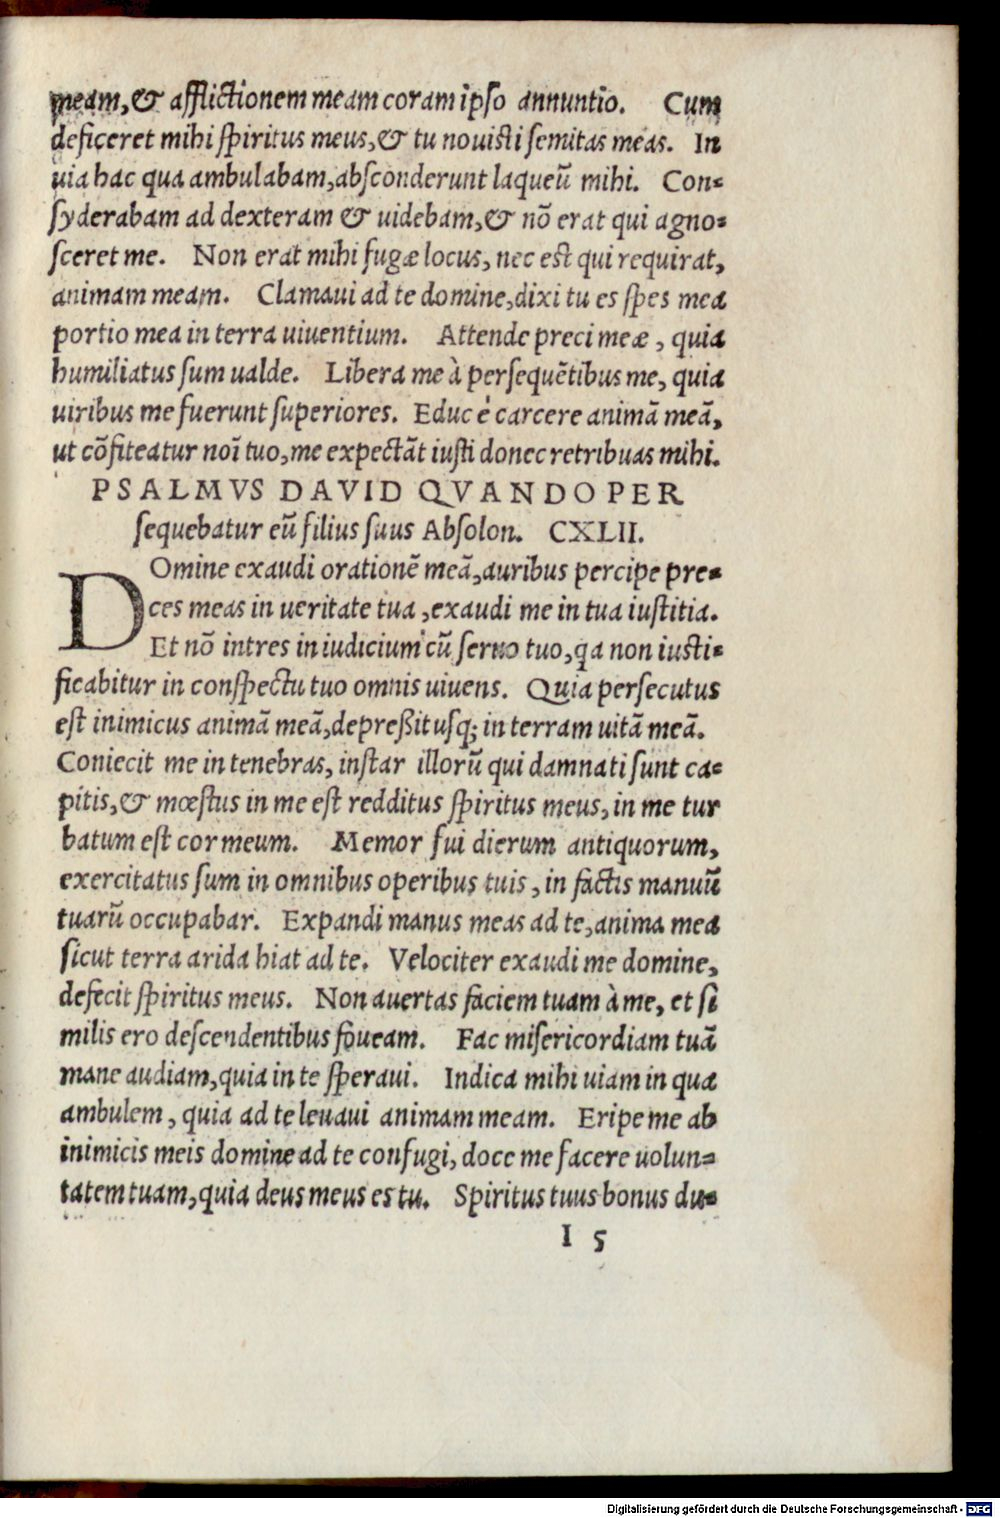 meam,& afflictionem meam coram ipso annuntio. Cum
deficeret mihi spiritus meus,& tu nouisti semitas meas. In
uia hac qua ambulabam,absconderunt laqueū mihi. Con-
syderabam ad dexteram & uidebam,& nō erat qui agno-
sceret me. Non erat mihi fugæ locus, nec est qui requirat,
animam meam. Clamaui ad te domine,dixi tu es spes mea
portio mea in terra uiuentium. Attende preci meæ, quia
humiliatus sum ualde. Libera me à persequētibus me, quia
uiribus me fuerunt superiores. Educ è carcere animā meā,
ut cōfiteatur noī tuo,me expectāt iusti donec retribuas mihi.
PSALMVS DAVID QVANDO PER
sequebatur eū filius suus Absolon. CXLII.
DOmine exaudi orationē meā,auribus percipe pre-
ces meas in ueritate tua,exaudi me in tua iustitia.
Et nō intres in iudicium cū seruo tuo,qa non iusti-
ficabitur in conspectu tuo omnis uiuens. Quia persecutus
est inimicus animā meā,depreßit usq; in terram uitā meā.
Coniecit me in tenebras, instar illorū qui damnati sunt ca-
pitis,& mœstus in me est redditus spiritus meus, in me tur
batum est cor meum. Memor fui dierum antiquorum,
exercitatus sum in omnibus operibus tuis, in factis manuū
tuarū occupabar. Expandi manus meas ad te,anima mea
sicut terra arida hiat ad te. Velociter exaudi me domine,
defecit spiritus meus. Non auertas faciem tuam à me, et si
milis ero descendentibus foueam. Fac misericordiam tuā
mane audiam,quia in te speraui. Indica mihi uiam in qua
ambulem, quia ad te leuaui animam meam. Eripe me ab
inimicis meis domine ad te confugi, doce me facere uolun-
tatem tuam,quia deus meus es tu. Spiritus tuus bonus du-
I 5
Digitalisierung gefördert durch die Deutsche Forschungsgemeinschaft - DFG